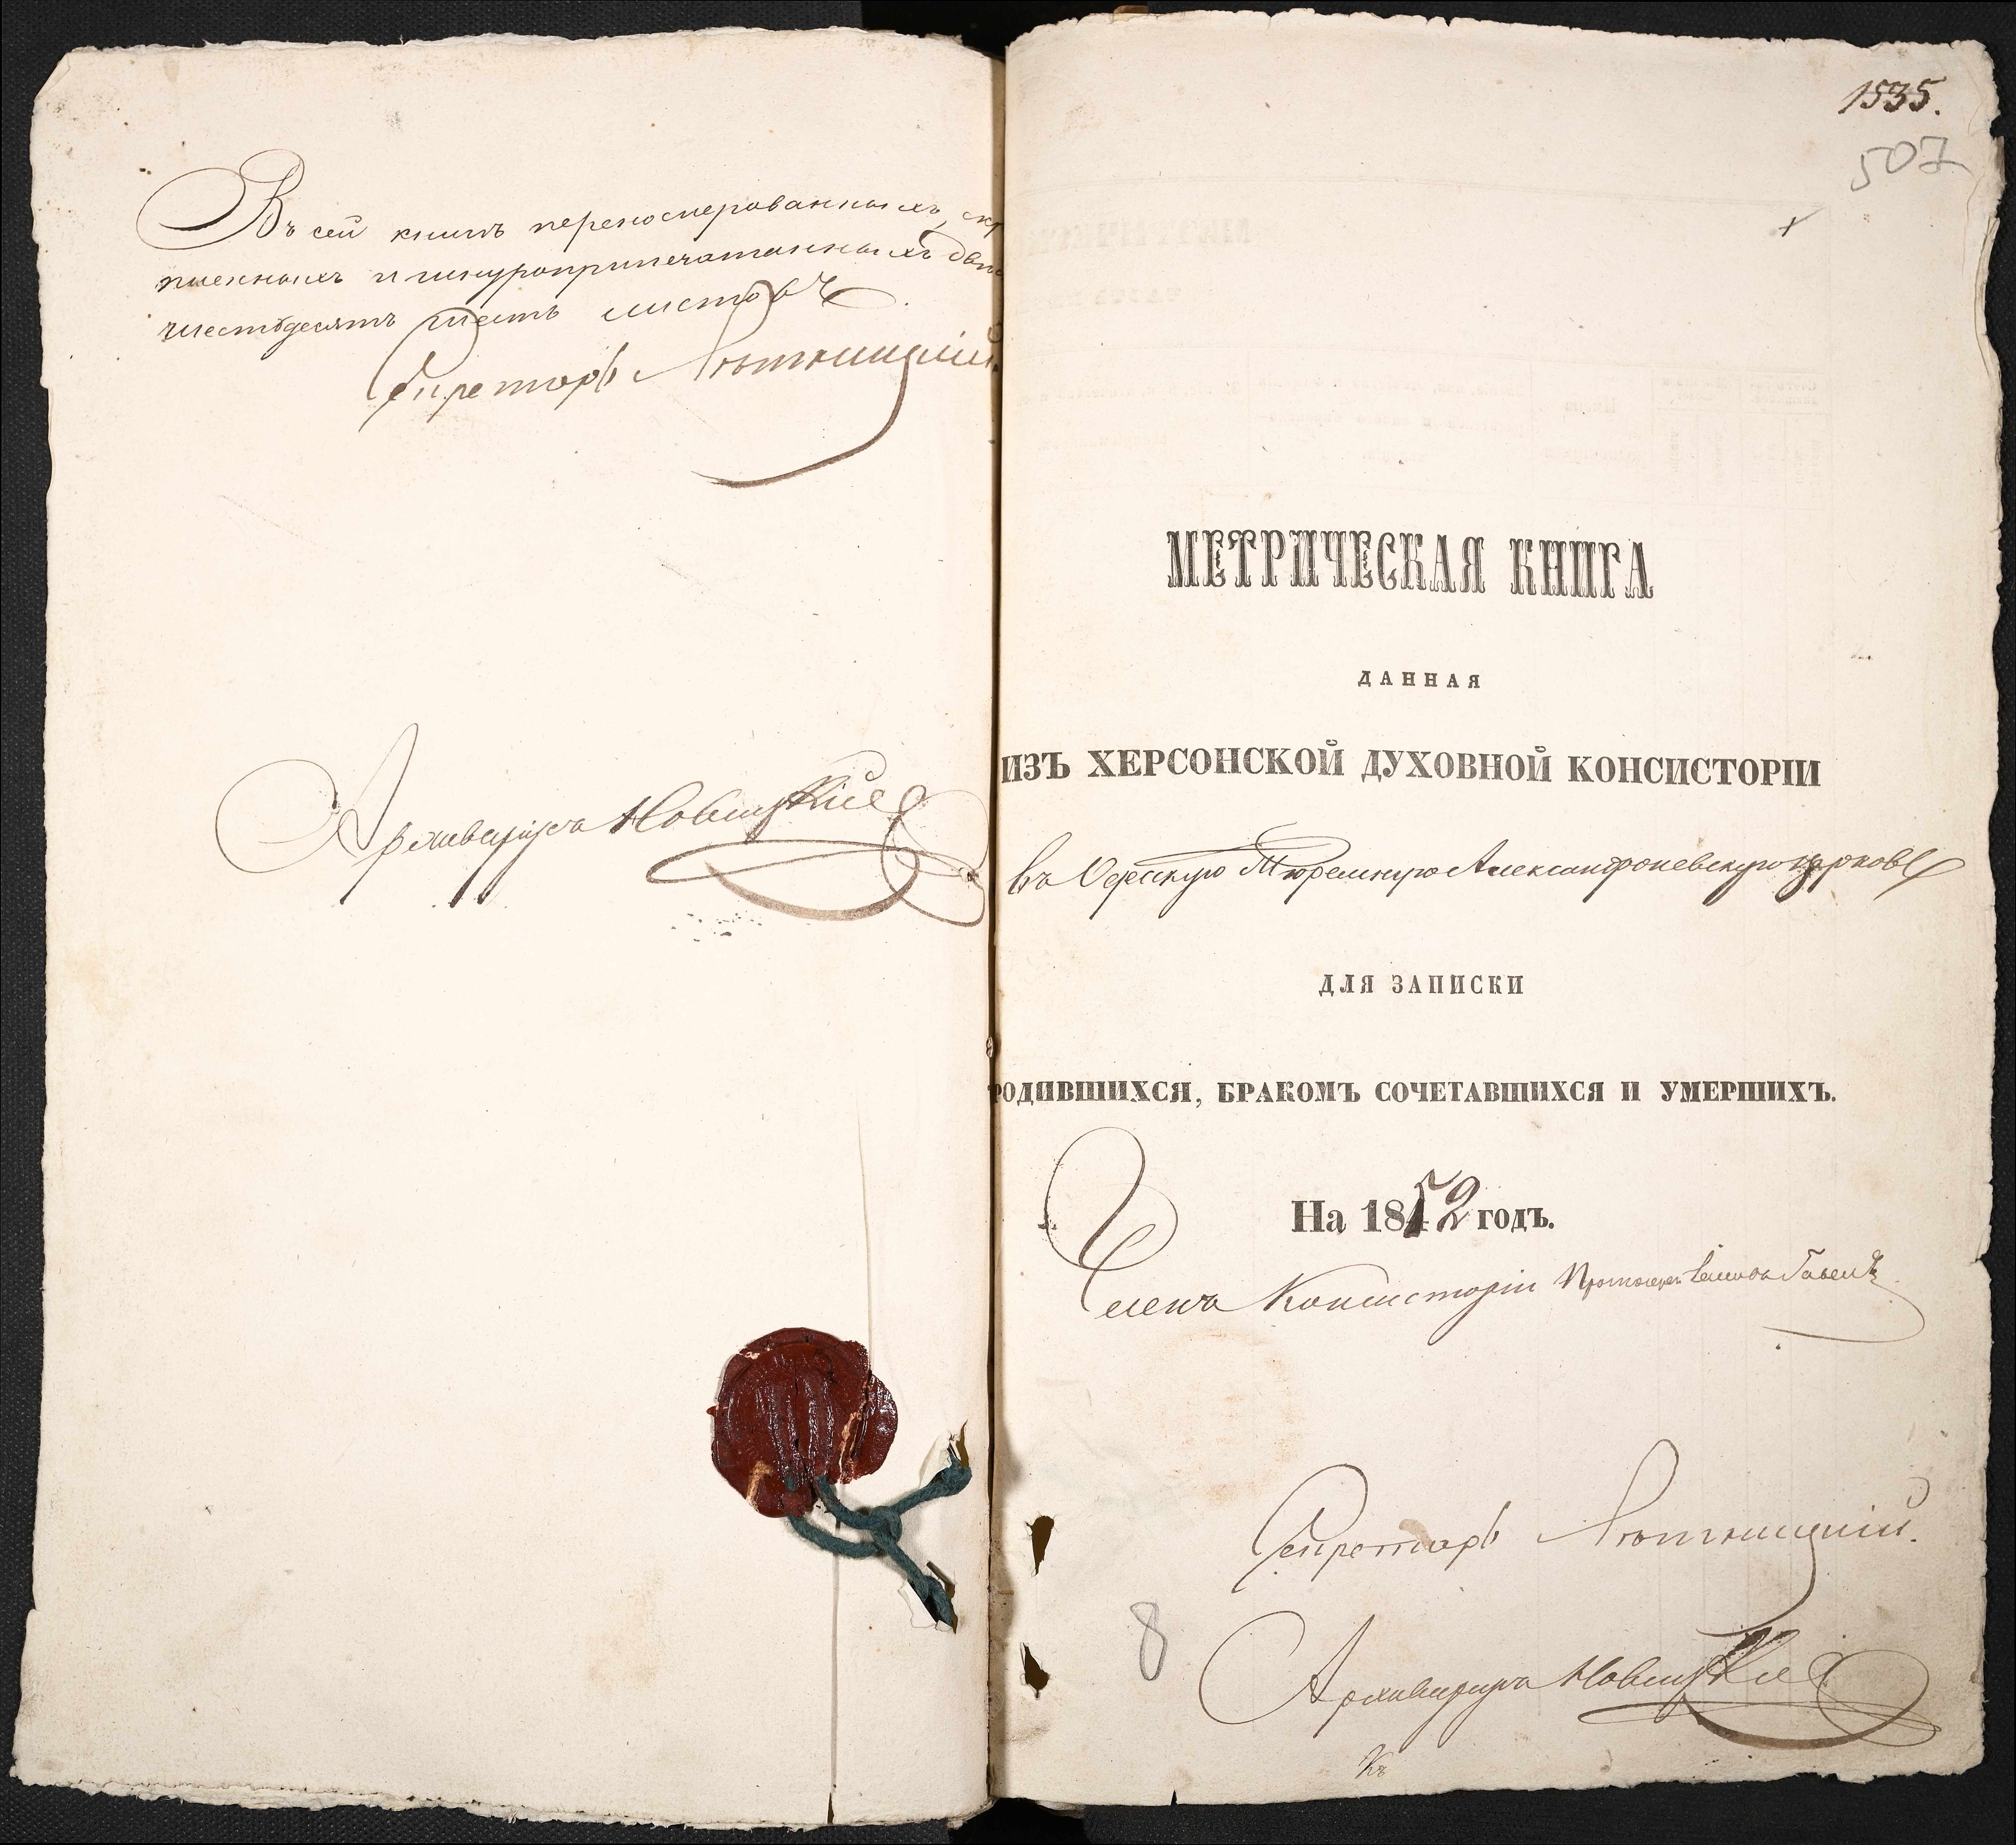 Въ сей книгѣ перенумерованныхъ, скр
пленныхъ и шнуроприпечатанныхъ два
шестьдесятъ шесть листовъ
Секретарь Лютницкій
Архиваріусъ Новицкій
1535.
507
МЕТРИЧЕСКАЯ КНИГА
ДАННАЯ
ИЗЪ ХЕРСОНСКОЙ ДУХОВНОЙ КОНСИСТОРІИ
въ Одесскую Тюремную Александроневскую церковь
ДЛЯ ЗАПИСКИ
РОДИВШИХСЯ, БРАКОМЪ СОЧЕТАВШИХСЯ И УМЕРШИХЪ.
На 1852 годъ.
Членъ Консисторіи Протоіерей
Секретарь Лютницкій.
8
Архиваріусъ Новицкій